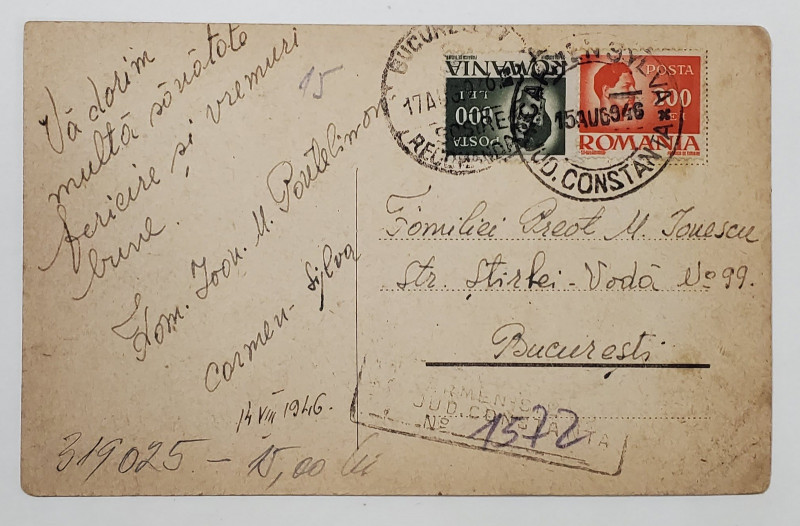 Vă dorim
multă sănătate
fericire și vremuri
bune,
Ioan. M. Pantelimon
Carmen-Sylva
14 VIII 1946.
15
319025 - 15,00 lei
BUCUREȘTI
17 AUG
SOSIRE
RECOMANDATE
POSTA
300
LEI
ROMANIA
CARMEN SYLVA
15 AUG 946
JUD. CONSTANTA
POSTA
ROMANIA
Familiei Preot M. Ionescu
Str. Știrbei-Vodă No 99.
București
CARMEN-S
JUD. CONSTANTA
No 1572